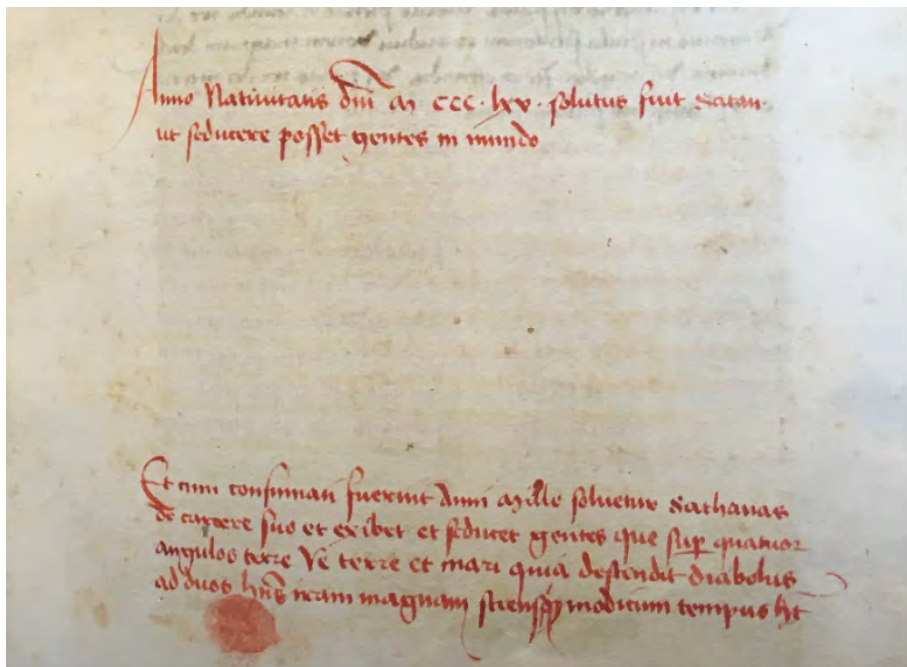 Anno Natiuitatis dni M ccc · lxv · solutus fuit Satan·
ut seducere posset gentes in mundo
Et cum consumati fuerint Anni Mille soluetur Sathanas
de carcere suo et exibet et seducet gentes que sup quatuor
angulos terre Ve terre et mari quia descendit diabolus
ad duos hns iram magnam sciens modicum tempus ht